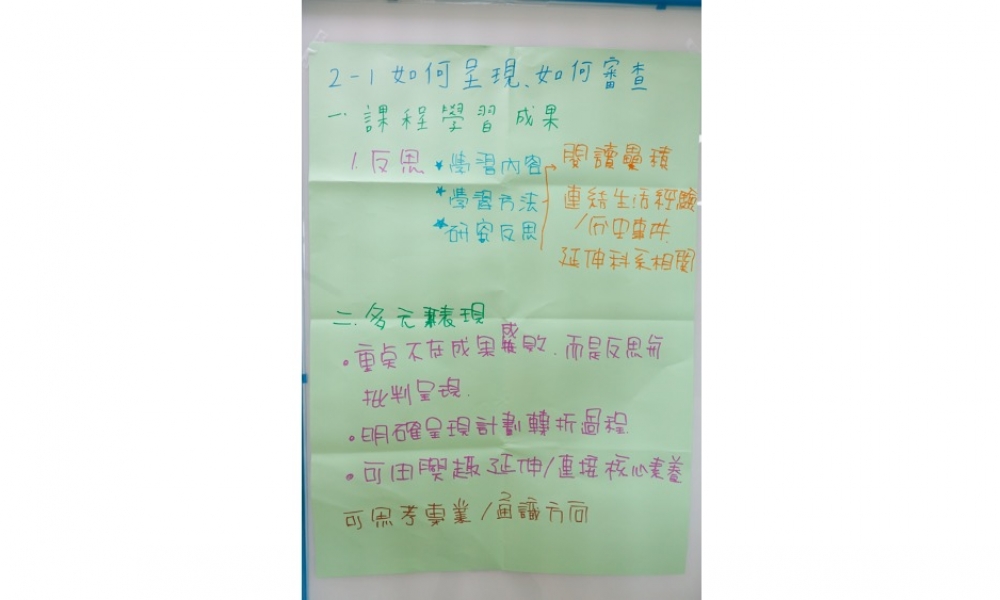 2-1 如何呈現、如何審查
一. 課程學習成果
1. 反思 ★學習內容 閱讀累積
★學習方法 連結生活經驗
★研究反思 /

延伸科系相關
二. 多元表現
• 重點不在成果成敗, 而是反思
批判呈現.
• 明確呈現計劃轉折過程
• 可由興趣延伸/連接核心素養
可思考專業/通識方向